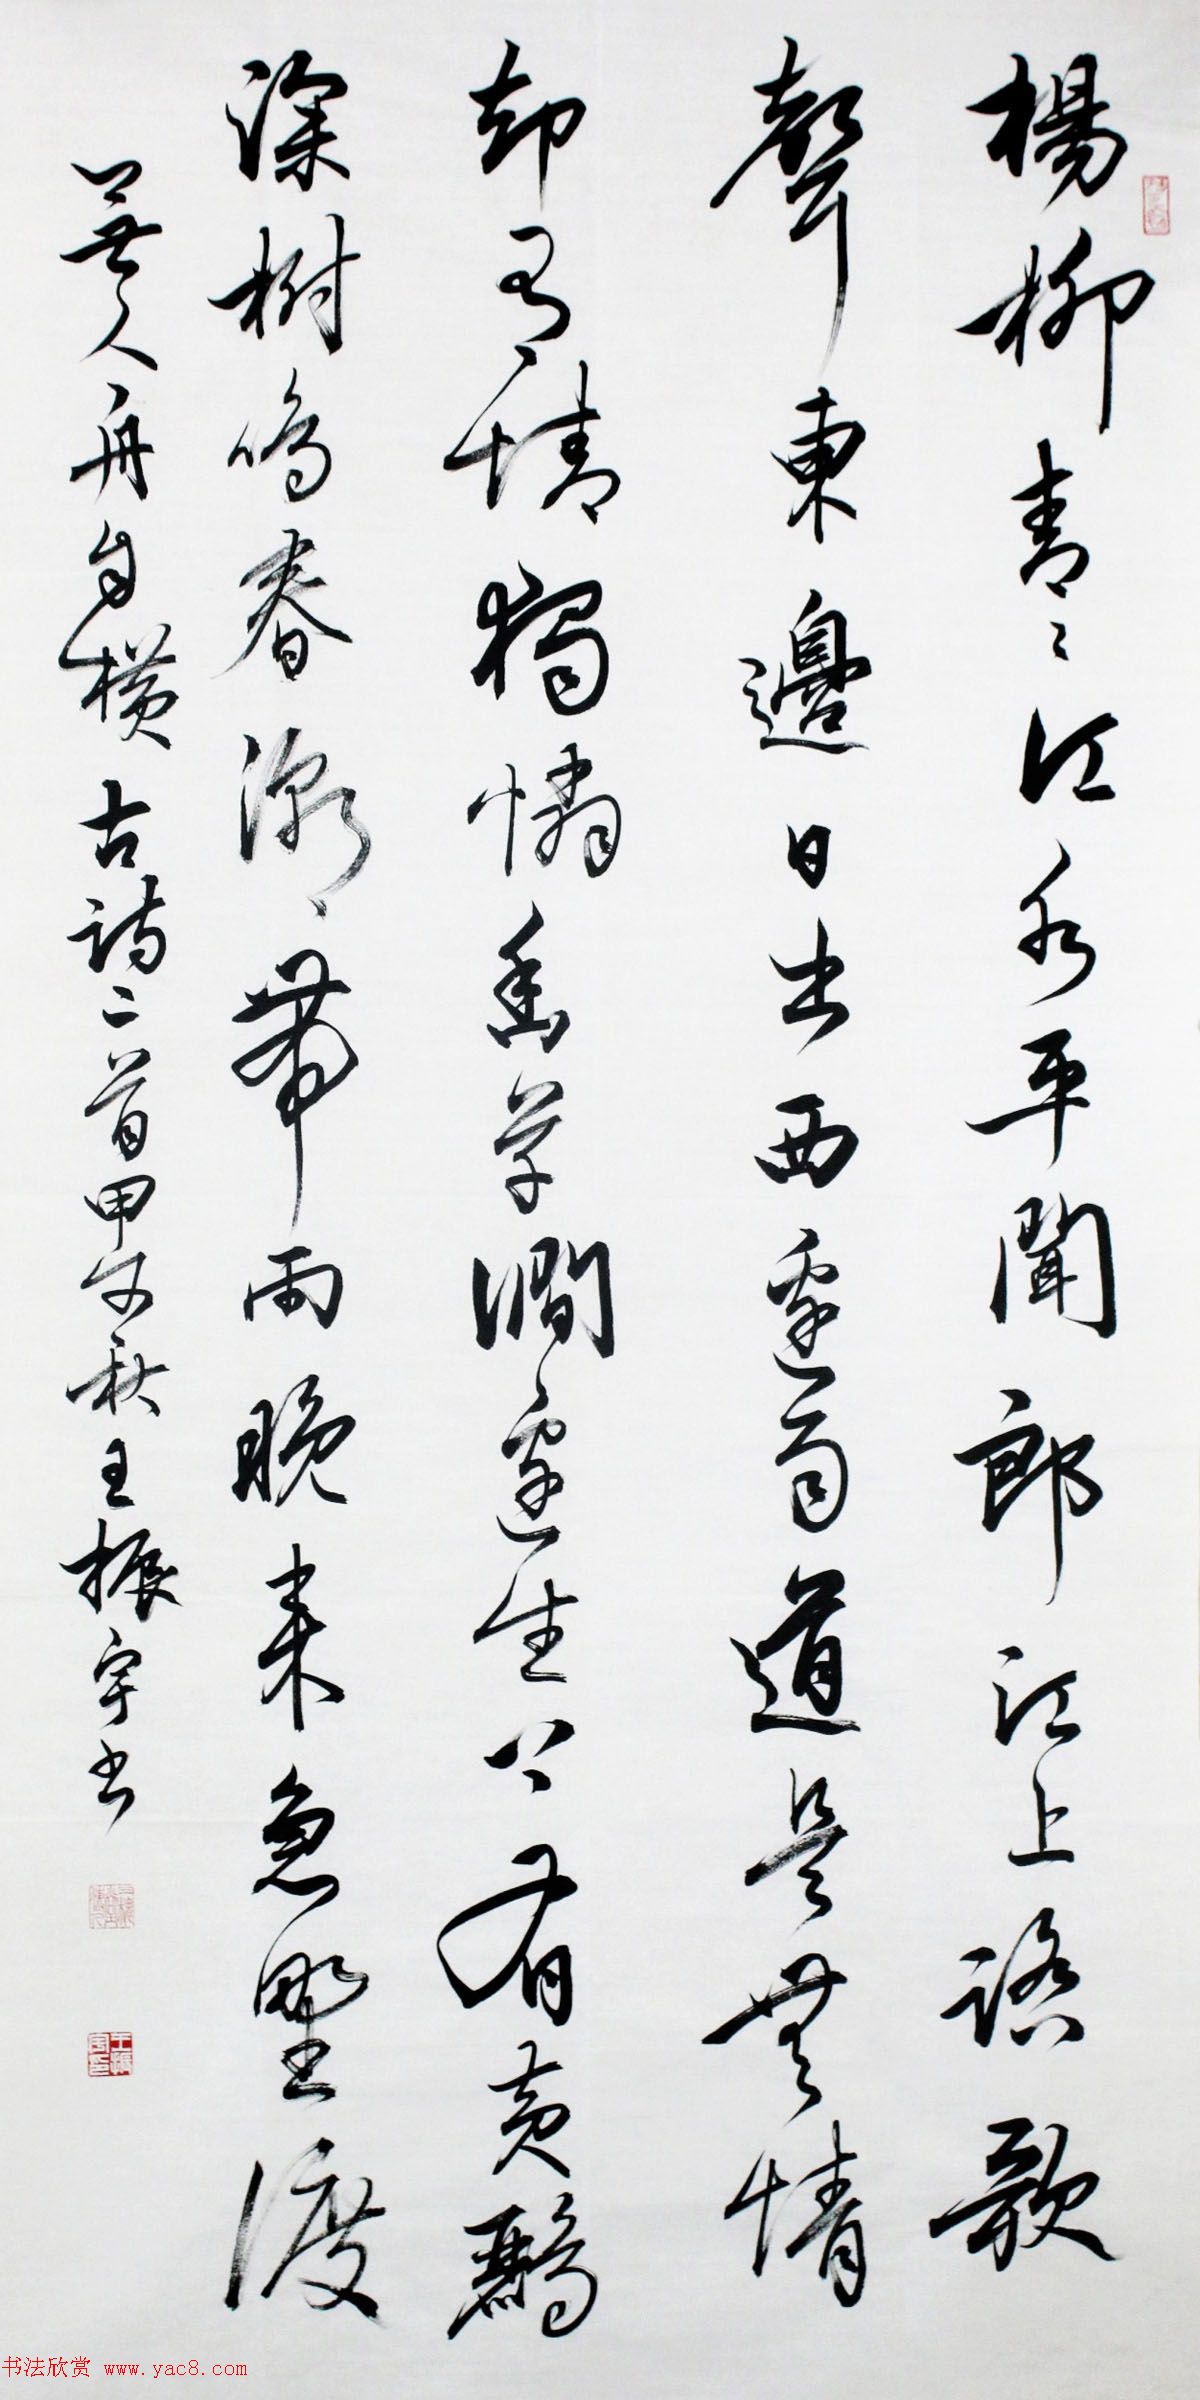 楊柳青々江水平聞郎江上踏歌
聲東邊日出西邊雨道是無情
却有情獨憐幽草澗邊生上有黃鸝
深樹鳴春潮帶雨晚来急野渡
無人舟自橫古詩二首甲午秋王振宇书
书法欣赏 www.yac8.com